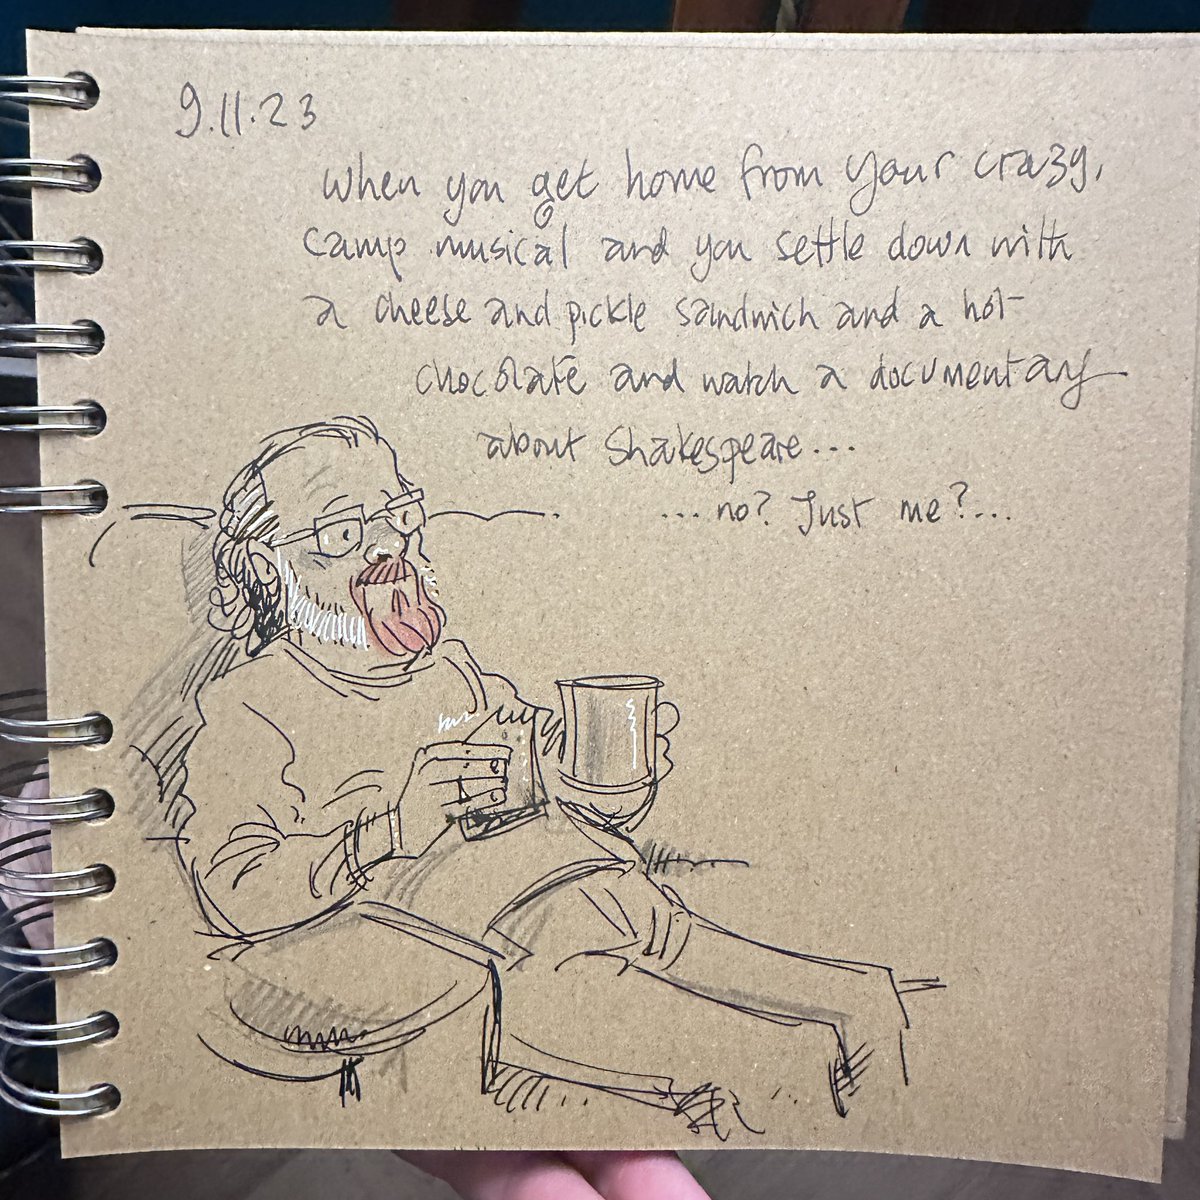 9.11.23
When you get home from your crazy,
camp musical and you settle down with
a cheese and pickle sandwich and a hot
chocolate and watch a documentary
about Shakespeare...
...no? Just me?...